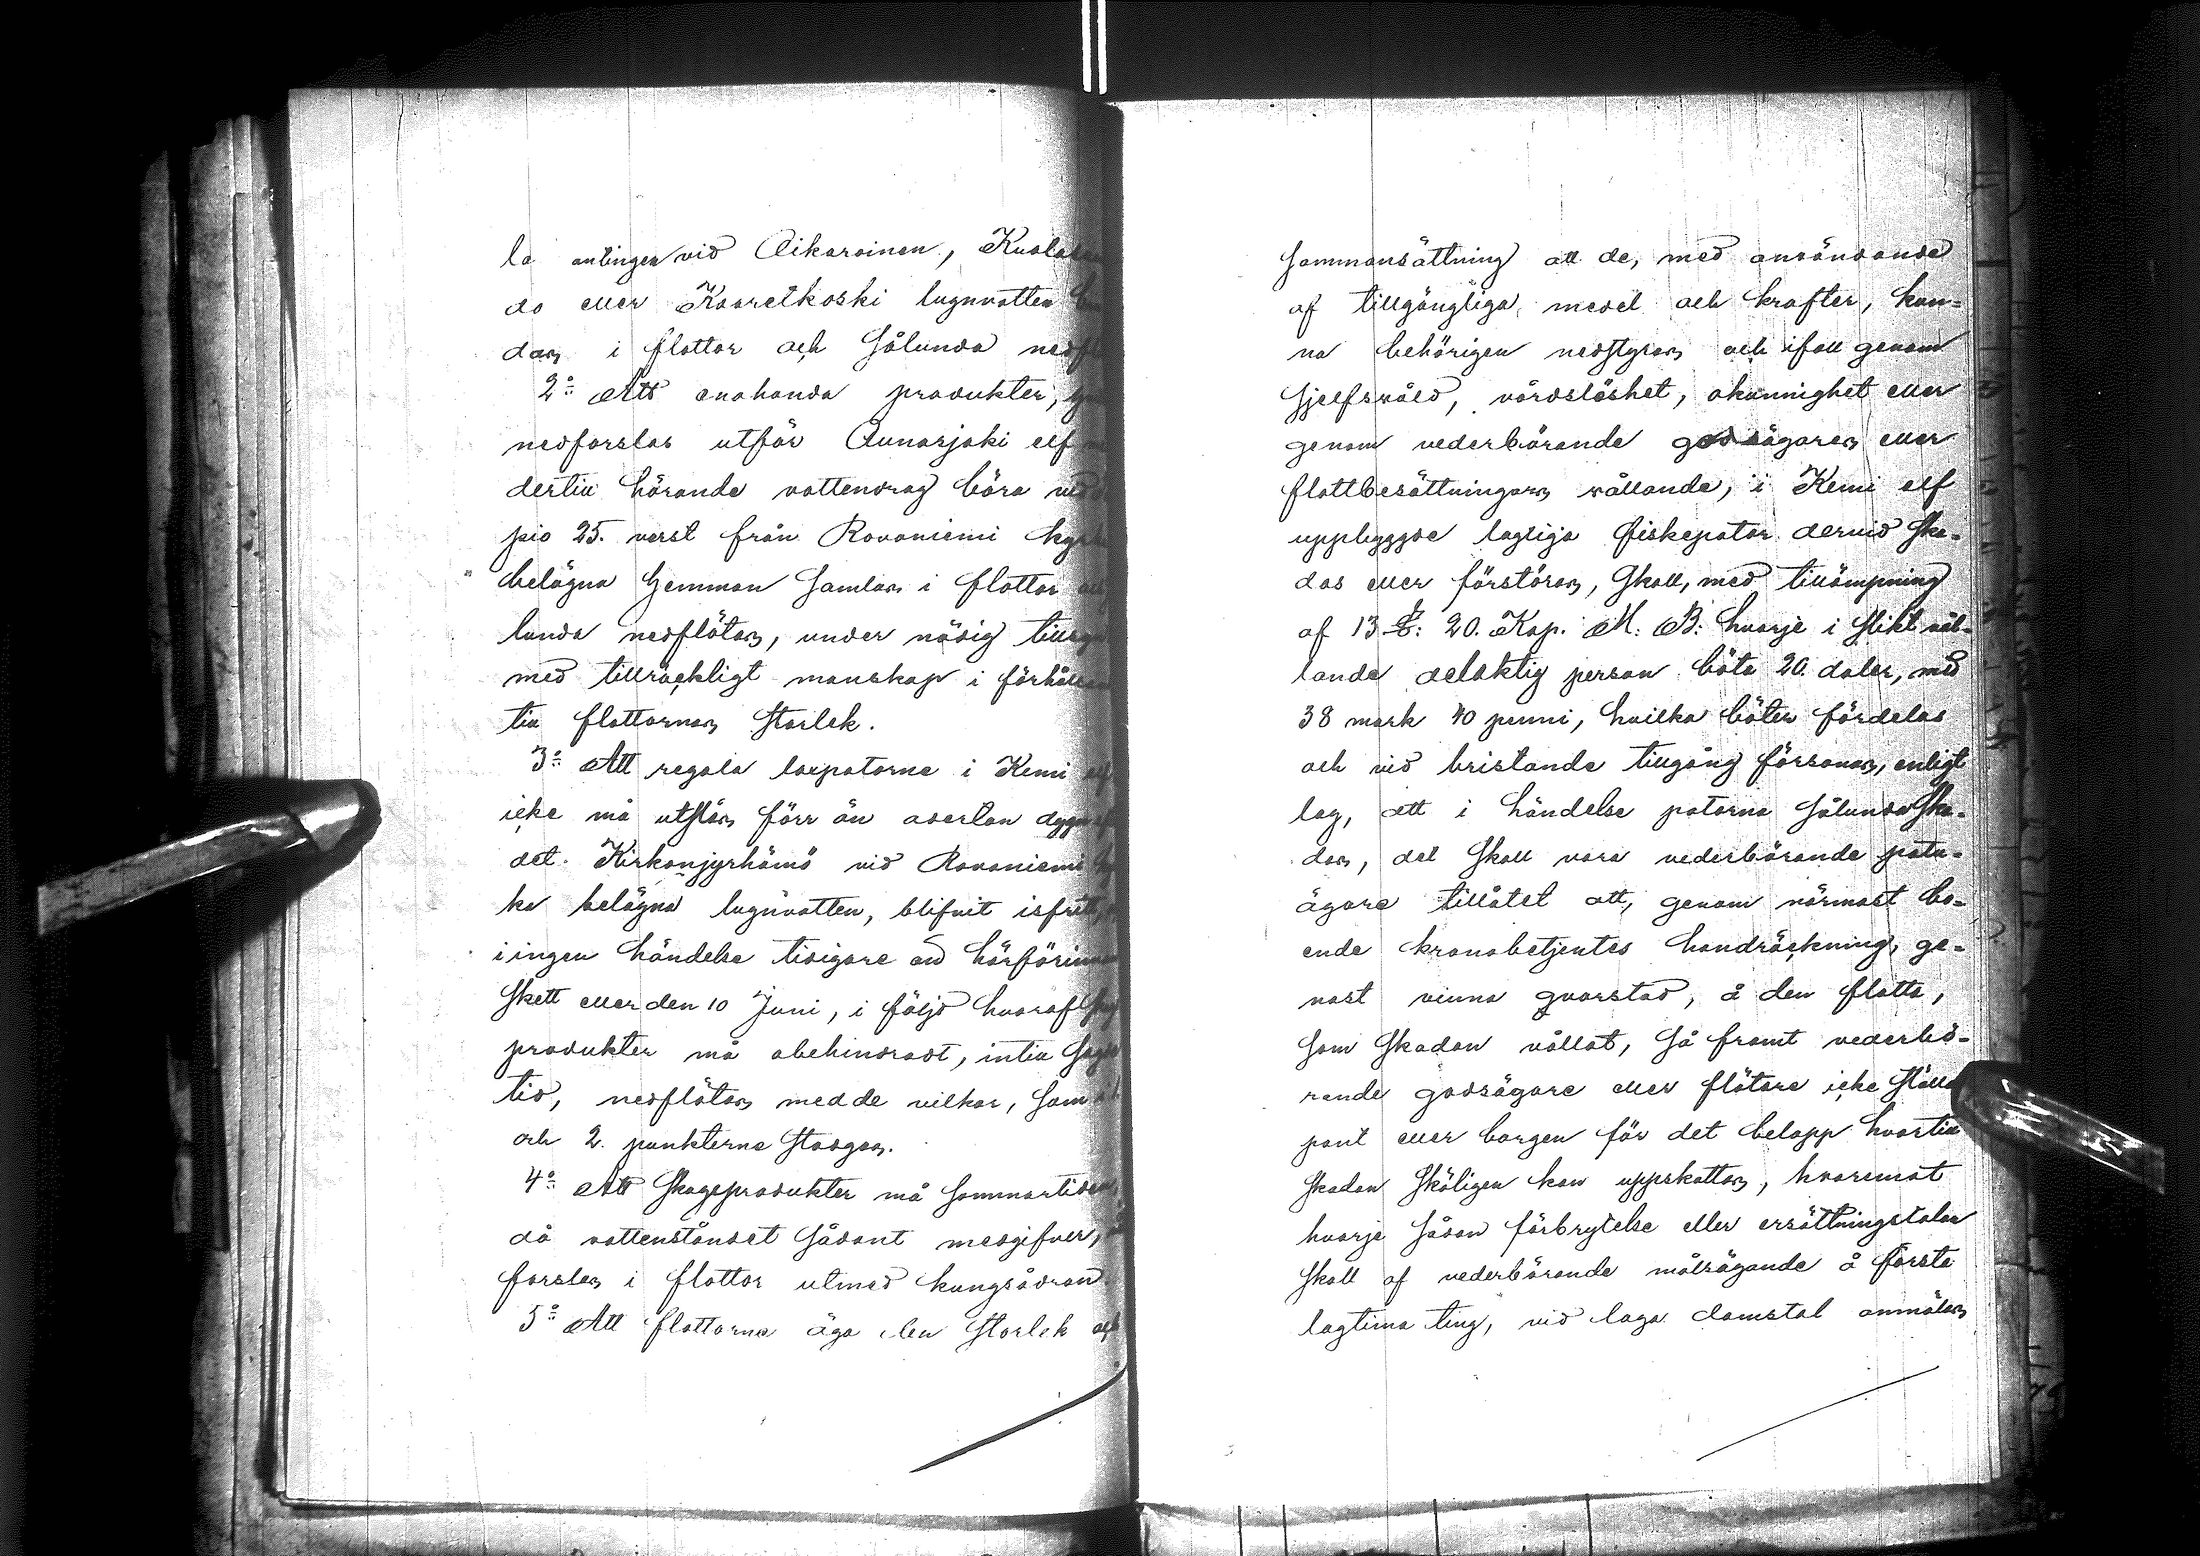 la antingen vid Aikaroinen,
do eller Kaaretkoski lugnvatten
das i flottor och sålunda
2:o Att enahanda produkter,
nedforslas utför Aunasjoki elf
dertill hörande vattendrag böra
pio 25. verst från Rovaniemi
belägna hemman samlas i flottor
lunda nedflötas, under nödig
med tillräckligt manskap i
till flottornas storlek.
3:o Att regala laxpatorne i Kemi
icke må utslås förr än aderton
det Kirkonjyrhämä vid Rovaniemi
ka belägna lugnvatten, blifvit
i ingen händelse tidigare än
skett eller den 10 Juni, i följd hvaraf
produkter må obehindradt, intill
tid, nedflötas med de vilkor, som
och 2. punkterne stadgas.
4:o Att skogsprodukter må
då vattenståndet sådant medgifver,
forslas i flottor utmed kungsådran.
5:o Att flottorna äga den storlek och
sammansättning att de, med användande
af tillgängliga medel och krafter, kun-
na behörigen nedstyras och ifall genom
sjelfsvåld, vårdslöshet, okunnighet eller
genom vederbörande godsägares eller
flottbesättningars vållande, i Kemi elf
uppbyggde lagliga fiskepator dervid ska-
das eller förstöras, skall, med tillämpning
af 13 §: 20. Kap. M: B: hvarje i slikt vål-
lande delaktig person böta 20. daler, med
38 mark 40 penni, hvilka böter fördelas
och vid bristande tillgång försonas, enligt
lag, att i händelse patorne sålunda ska-
das, det skall vara vederbörande pata-
ägare tillåtet att, genom närmast bo-
ende kronobetjentes handräckning, ge-
nast vinna qvarstad, å den flotta,
som skadan vållat, så framt vederbö-
rande godsägare eller flötare icke ställa
pant eller borgen för det belopp hvartill
skadan skäligen kan uppskattas, hvaremot
hvarje sådan förbrytelse eller ersättningstalan
skall af vederbörande målsägande å första
lagtima ting, vid laga domstol anmälas